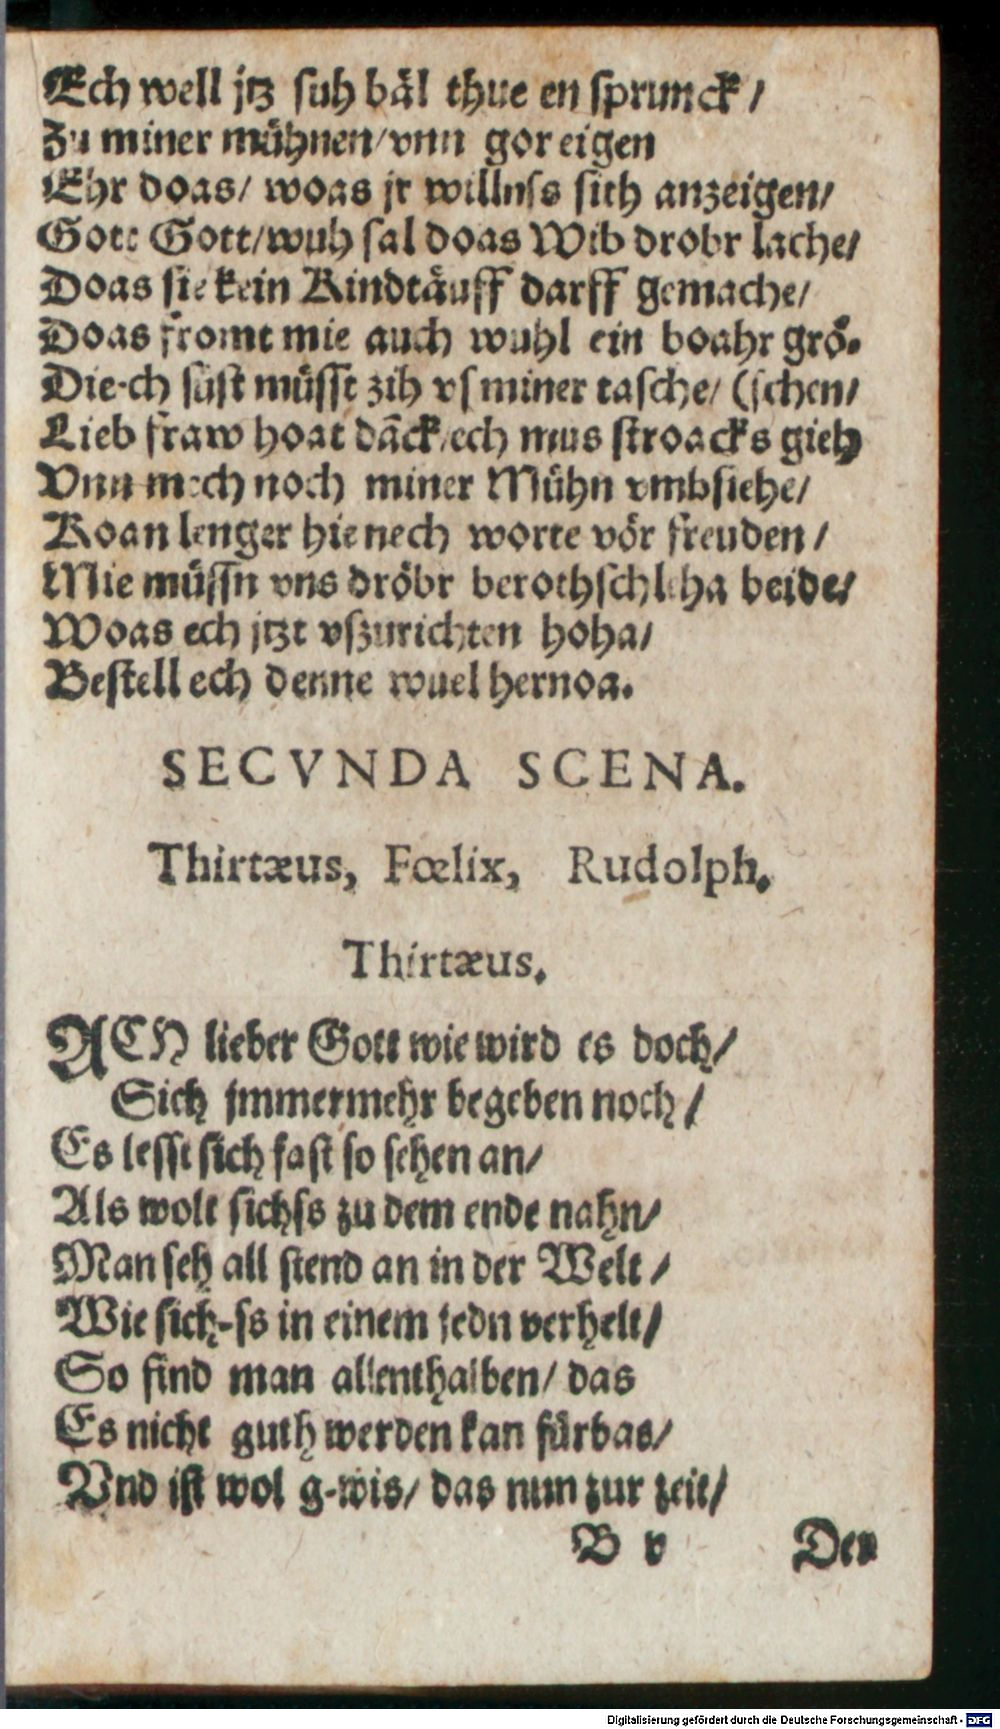 Ech well jtz suh bäl thue en sprunck /
Zu miner mühnen/vnn gor eigen
Ehr doas/ woas jr willnss sich anzeigen/
Gott Gott/wuh sal doas Wib drobr lache/
Doas sie kein Kindtäuff darff gemache/
Doas fromt mie auch wuhl ein boahr grö.
Die-ch süst müsst zih vs miner tasche/ (schen/
Lieb fraw hoat dāck/ech mus stroacks gieh
Vnn mich noch miner Mühn vmbsiehe/
Koan lenger hie nech worte vör freuden /
Mie müssn vns dröbr berothschleha beide/
Woas ech jtzt vszurichten hoha/
Bestell ech denne wuel hernoa.
SECVNDA SCENA.
Thirtæus, Fœlix, Rudolph.
Thirtæus.
ACH lieber Gott wie wird es doch/
Sich jmmermehr begeben noch/
Es lesst sich fast so sehen an/
Als wolt sichss zu dem ende nahn/
Man seh all stend an in der Welt /
Wie sich-ss in einem jedn verhelt/
So find man allenthalben/ das
Es nicht guth werden kan fürbas/
Vnd ist wol g-wis/ das nun zur zeit/
B v Der
Digitalisierung gefördert durch die Deutsche Forschungsgemeinschaft - DFG